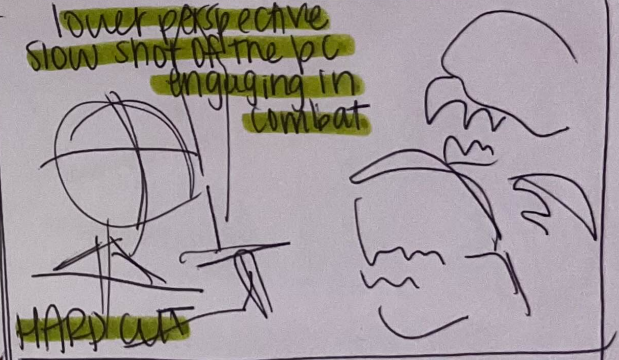 lower perspective
slow shot of the pc
engaging in
combat
HARD CUT